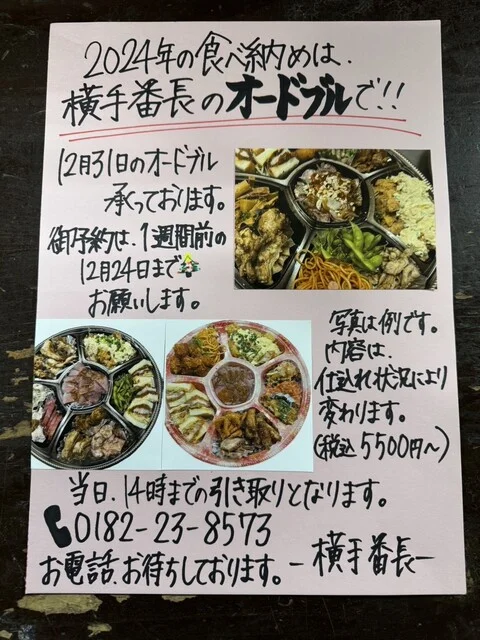 2024年の食べ納めは、
横手番長のオードブルで!!
12月31日のオードブル
承っております。
御予約は、1週間前の
12月24日まで
お願いします。
写真は例です。
内容は、
仕込れ状況により
変わります。
(税込5500円〜)
当日、14時までの引き取りとなります。
0182-23-8573
お電話、お待ちしております。ー横手番長ー